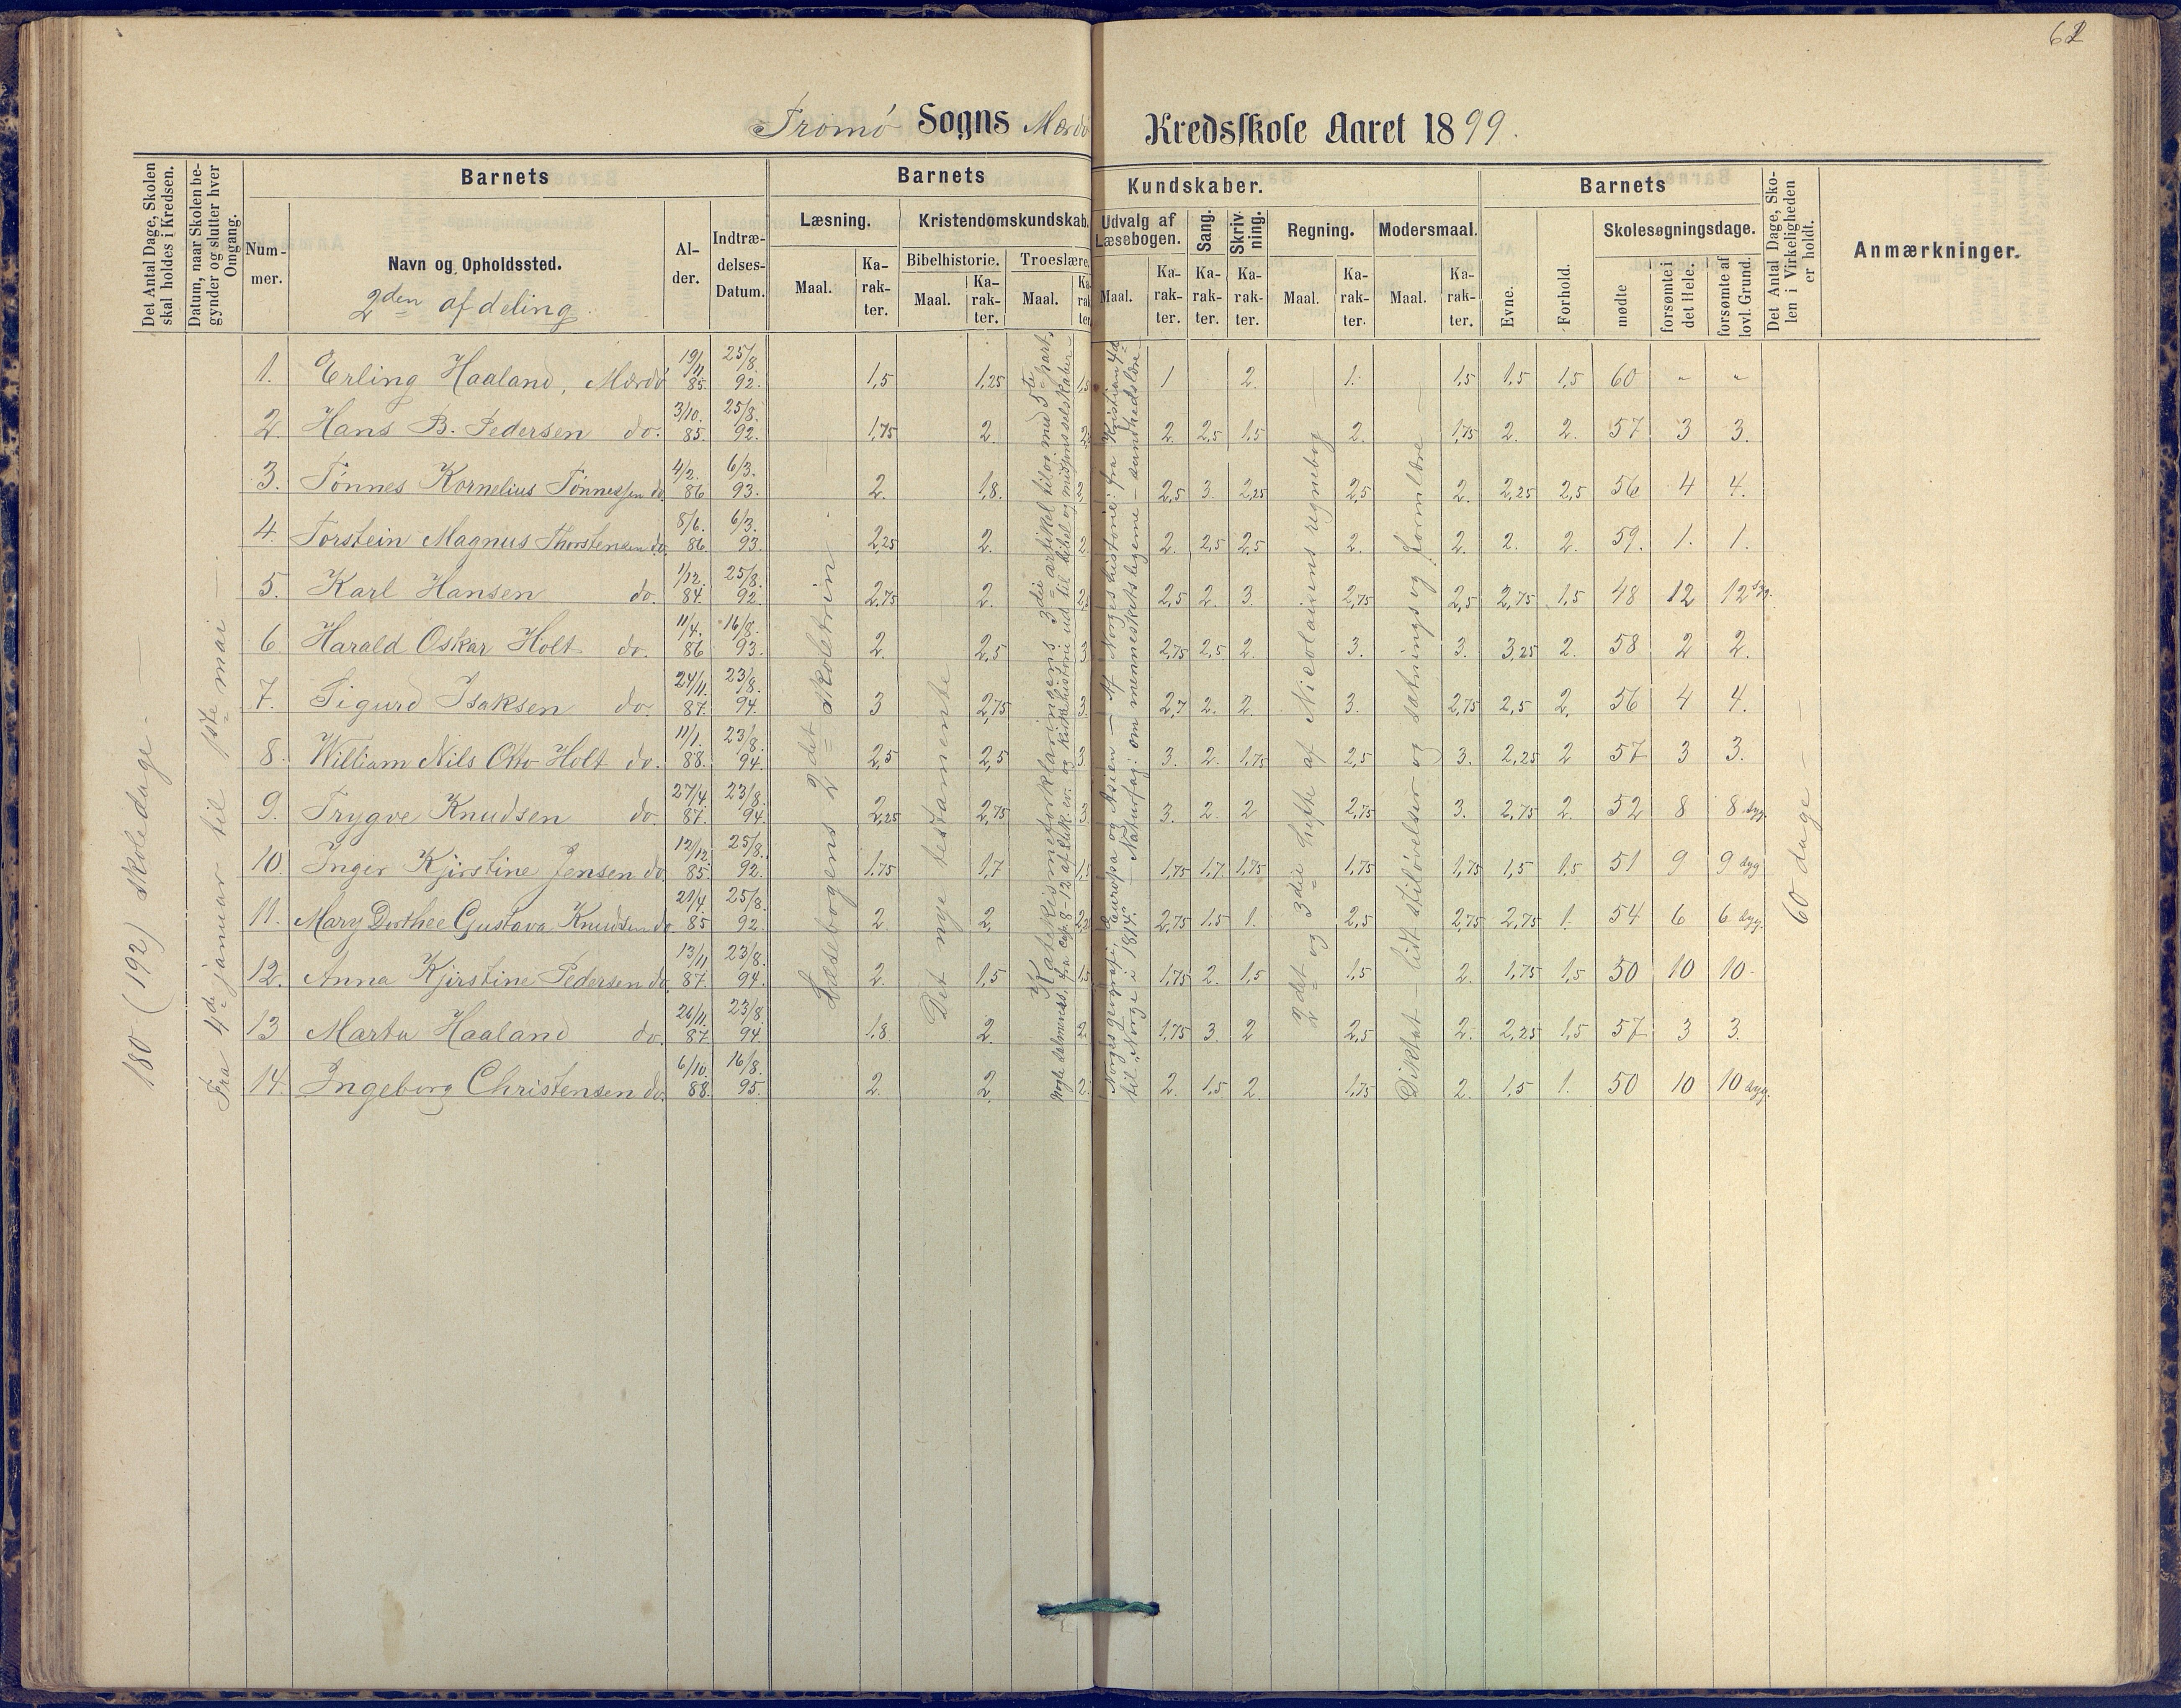 62
Tromø Sogns Mærdø Kredsskole Aaret 1899.
Det Antal Dage, Skolen skal holdes i Kredsen.
Datum, naar Skolen begynder og slutter hver Omgang.
Barnets
Nummer.
Navn og Opholdssted.
2den afdeling
Alder.
Indtrædelses-Datum.
Barnets Kundskaber.
Læsning.
Maal.
Karakter.
Kristendomskundskab.
Bibelhistorie.
Maal.
Karakter.
Troeslære.
Maal.
Karakter
Udvalg af Læsebogen.
Maal.
Karakter.
Sang.
Karakter.
Skrivning.
Karakter.
Regning.
Maal.
Karakter.
Modersmaal.
Maal.
Karakter.
Barnets
Evne.
Forhold.
Skolesøgningsdage.
mødte
forsømte i det Hele.
forsømte af lovl. Grund.
Det Antal Dage, Skolen i Virkeligheden er holdt.
Anmærkninger.
180 (192) skoledage
Fra 4de januar til 1ste mai
Læsebogens 2det skoletrin
Det nye testamente
Katekismeforklaringens 3die artikel tilog med 5te part.
2det og 3die hefte af Nicolaisens regnebog
Diktat - lidt stiløvelser og sætnings og formlære
60 dage
1. Erling Haaland, Mærdø 19/11 85. 25/8. 92. 1,5 1,25 1,5 1 2. 1. 1,5 1,5 1,5 60 " "
2. Hans B. Pedersen do. 3/10. 85. 25/8. 92. 1,75 2. 2. 2,5 1,5 2. 1,75 2. 2. 57 3 3.
3. Tønnes Kornelius Tønnessen do. 4/2. 86 6/3. 93. 2. 1,8. 2,5 3. 2,25 2,5 2. 2,25 2,5 56 4 4.
4. Torstein Magnus Thorstensen do. 8/6. 86. 6/3. 93. 2,25 2. 2. 2. 2,5 2,5 2. 2. 2. 2. 59. 1. 1.
5. Karl Hansen do. 1/12. 84. 25/8. 92. 2,75 2. 2,5 2. 3. 2,75 2,5 2,75 1,5 48 12 12
6. Harald Oskar Holt do. 11/4. 86 16/8. 93. 2. 2,5 3 2,75 2,5 2. 3. 3. 3,25 2. 58 2 2.
7. Sigurd Isaksen do. 24/11. 87. 23/8. 94. 3 2,75 3. 2,7 2. 2. 3. 2,75 2,5 2. 56 4 4.
8. William Nils Otto Holt do. 11/1. 88. 23/8. 94. 2,5 2,5 3 3. 2. 1,75 2,5 3. 2,25 2 57 3 3.
9. Trygve Knudsen do. 27/4. 87. 23/8. 94 2,25 2,75 3 3. 2. 2 2,75 3. 2,75 2. 52 8 8 syg.
10. Inger Kjirstine Jensen do. 12/12. 85. 25/8. 92. 1,75 1,7 1,5 1,75 1,7 1,75 1,75 1,75 1,5 1,5 51 9 9 syg
11. Mary Dorthee Gustava Knudsen do. 21/4. 85 25/8. 92. 2 2. 2,75 1,5 1. 2,5 2,75 2,75 1. 54 6 6 syg.
12. Anna Kjirstine Pedersen do. 13/11 87. 23/8. 94. 2. 1,5 1,5 1,75 2. 1,5 1,5 2. 1,75 1,5 50 10 10
13 Marta Haaland do. 26/11 87. 23/8. 94. 1,8. 2. 2. 1,75 3. 2 2,5 2. 2,25 1,5 57 3 3.
14. Ingeborg Christensen do. 6/10. 88. 16/8. 95. 2. 2. 2. 2. 1,5 2. 1,75 2. 1,5 1. 50 10 10 syg.